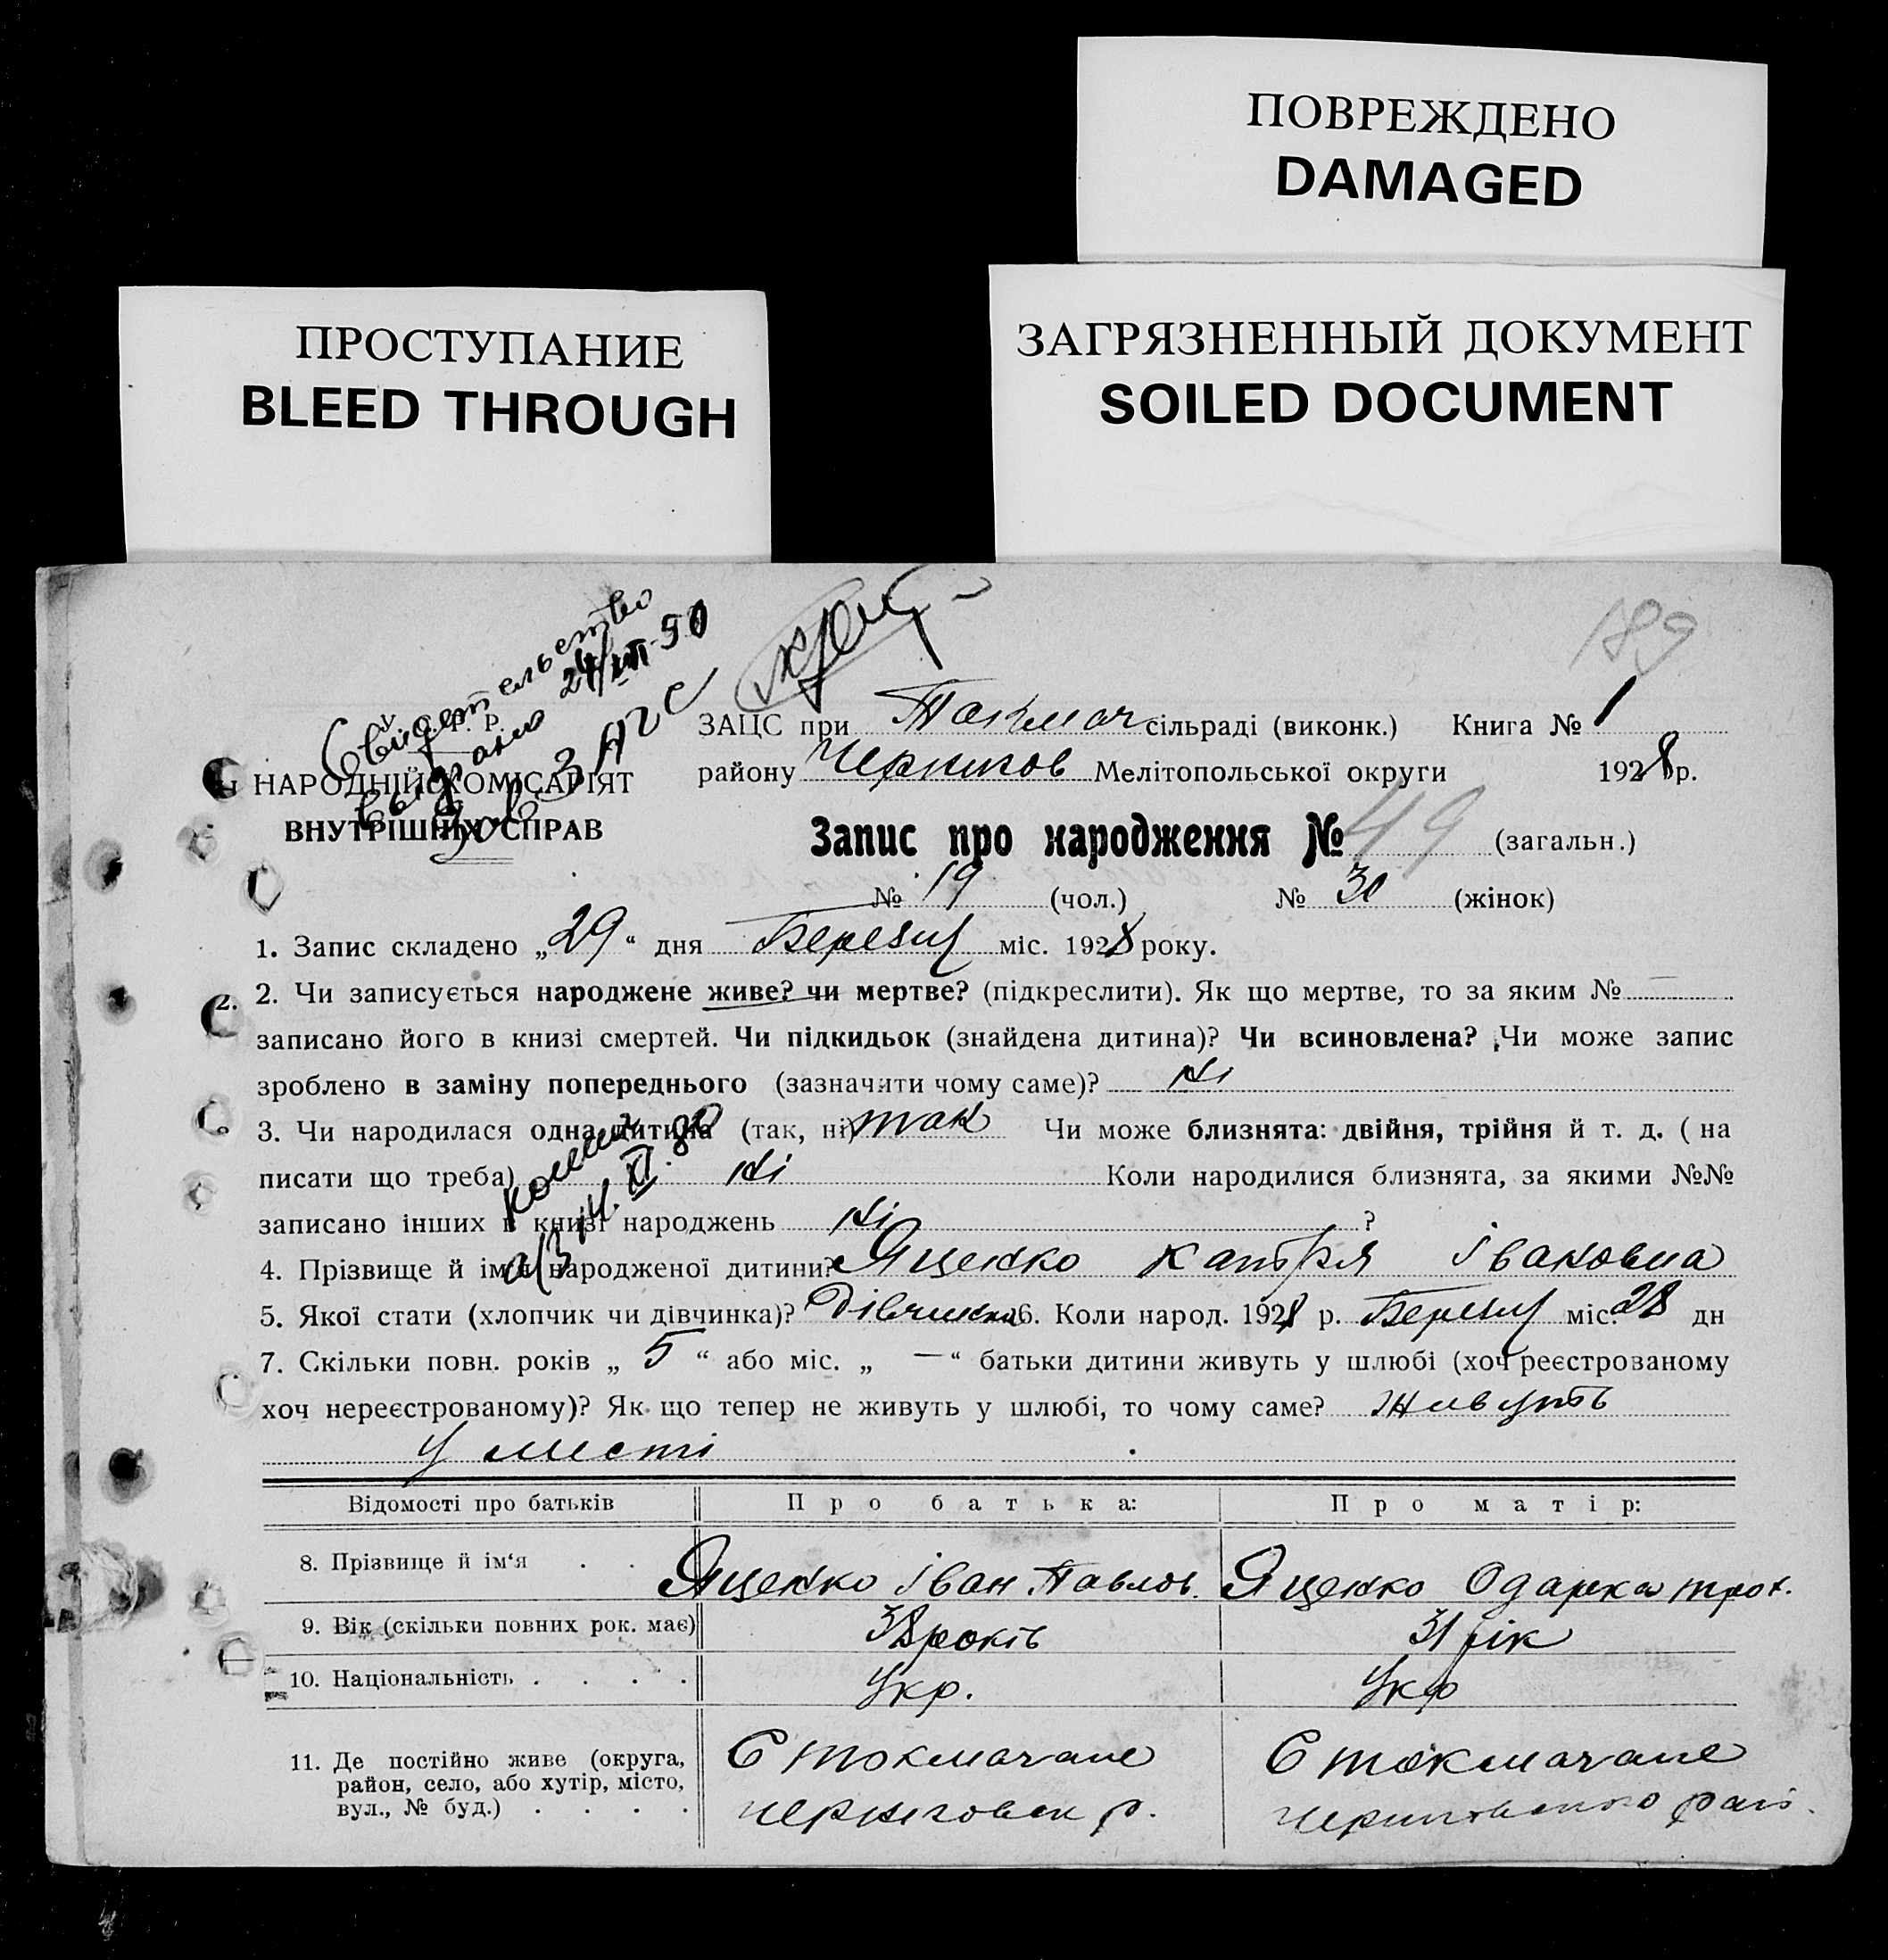 ПОВРЕЖДЕНО
DAMAGED
ПРОСТУПАНИЕ
BLEED THROUGH
ЗАГРЯЗНЕННЫЙ ДОКУМЕНТ
SOILED DOCUMENT
189
Свидетельство
выдано 24/VII-50
Зав. ЗАГС
У. С. Р. Р.
НАРОДНІЙ КОМІСАРІЯТ
ВНУТРІШНІХ СПРАВ
ЗАЦС при Токмач сільраді (виконк.) Книга № 1
району Чернигов Мелітопольської округи 1928 р.
Запис про народження № 49 (загальн.)
№ 19 (чол.) № 30 (жінок)
1. Запис складено „29“ дня Березня міс. 1928 року.
2. Чи записується народжене живе? чи мертве? (підкреслити). Як що мертве, то за яким № —
записано його в книзі смертей. Чи підкидьок (знайдена дитина)? Чи всиновлена? Чи може запис
зроблено в заміну попереднього (зазначити чому саме)? ні
3. Чи народилася одна дитина (так, ні) так Чи може близнята: двійня, трійня й т. д. ( на
писати що треба) ні Коли народилися близнята, за якими №№
записано інших в книзі народжень ні ?
4. Прізвище й ім'я народженої дитини? Яценко Катря Івановна
5. Якої стати (хлопчик чи дівчинка)? Дівчинка 6. Коли народ. 1928 р. Березня міс. 28 дн
7. Скільки повн. років „ 5 “ або міс. „ — “ батьки дитини живуть у шлюбі (хоч реєстрованому
хоч нереєстрованому)? Як що тепер не живуть у шлюбі, то чому саме? живуть
у місті
Відомості про батьків Про батька: Про матір:
8. Прізвище й ім‘я . . Яценко Іван Павлов. Яценко Одарка Трох.
9. Вік (скільки повних рок. має) 38 років 31 рік
10. Національність . . . . Укр. Укр
11. Де постійно живе (округа, С Токмачане С Токмачане
район, село, або хутір, місто,
вул., № буд.) . . . . Черниговск р. Черниговского рай.